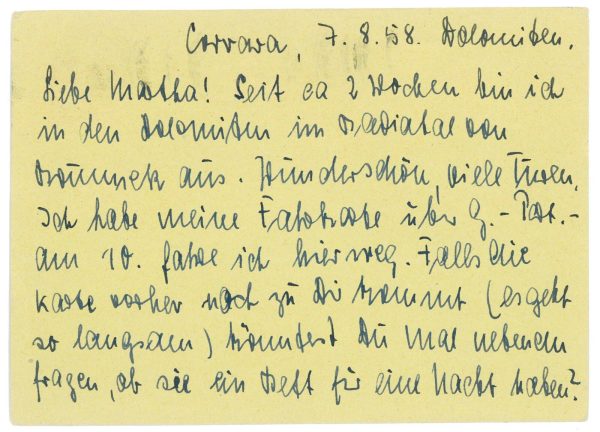 Corvara, 7.8.58. Dolomiten.
Liebe Martha! Seit ca 2 Wochen bin ich
in den Dolomiten im Badiatal von
Bruneck aus. Wunderschön, viele Turen.
Ich habe meine Fahrkarte über G.-Part.-
am 10. fahre ich hier weg. Falls die
Karte vorher noch zu Dir kommt (es geht
so langsam) könntest Du mal nebenan
fragen, ob sie ein Bett für eine Nacht haben?